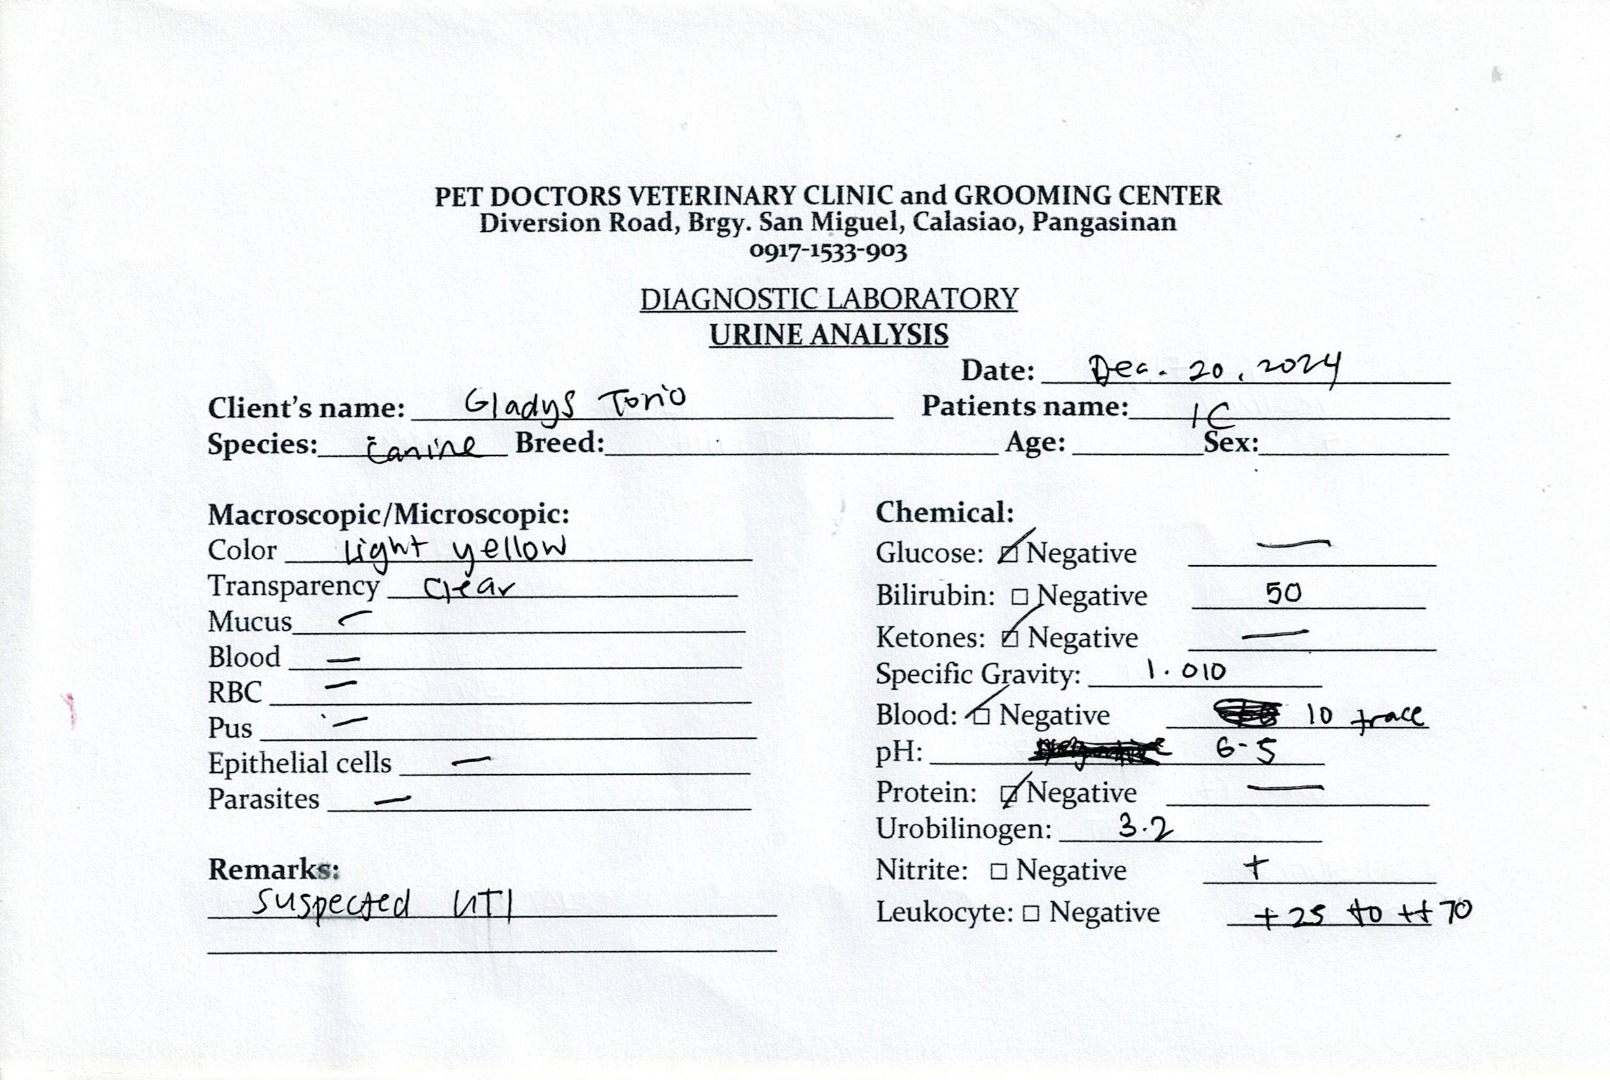 PET DOCTORS VETERINARY CLINIC and GROOMING CENTER
Diversion Road, Brgy. San Miguel, Calasiao, Pangasinan
0917-1533-903
DIAGNOSTIC LABORATORY
URINE ANALYSIS
Date: Dec. 20, 2024
Client's name: Gladys Torio Patients name: IC
Species: Canine Breed: Age: Sex:
Macroscopic/Microscopic:
Color Light yellow
Transparency Clear
Mucus —
Blood —
RBC —
Pus —
Epithelial cells —
Parasites —
Remarks:
Suspected UTI
Chemical:
Glucose: ☑ Negative —
Bilirubin: ☐ Negative 50
Ketones: ☑ Negative —
Specific Gravity: 1.010
Blood: ☑ Negative 10 trace
pH: 6-5
Protein: ☑ Negative —
Urobilinogen: 3.2
Nitrite: ☐ Negative +
Leukocyte: ☐ Negative + 25 to ++ 70